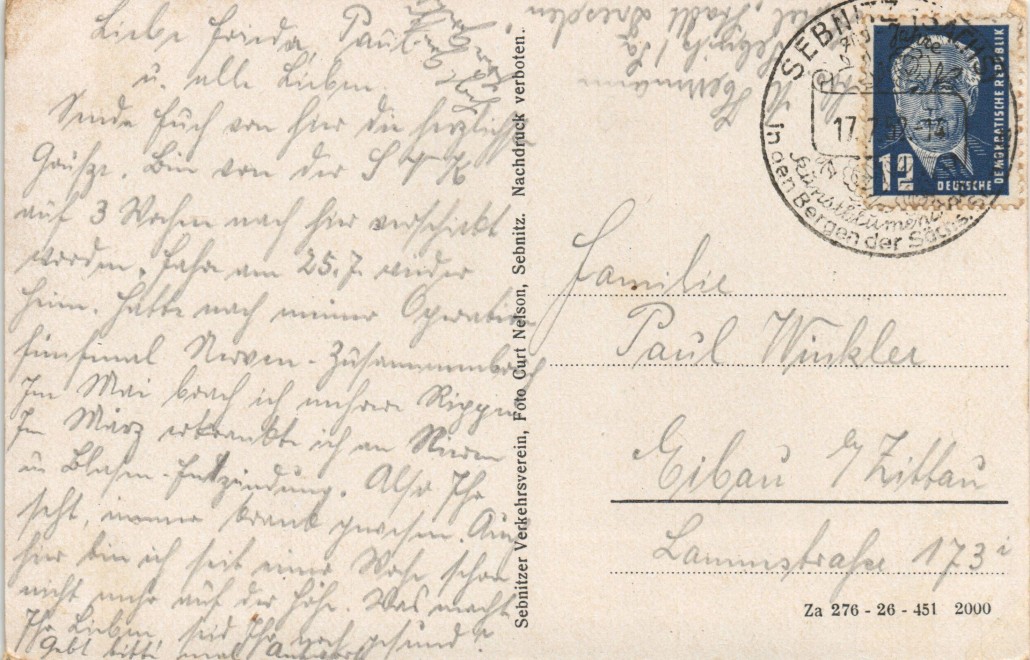 Liebe Frieda, Paul
u. alle Lieben.
Sende Euch von hier die herzlichsten
Grüsze. Bin von der
auf 3 Wochen nach hier verschickt
worden, fahre am 25.7. wieder
heim. Hatte nach meiner Operation
fünfmal Nerven-Zusammenbruch
Im Mai brach ich mehrere Rippen
Im März erkrankte ich an Nieren
u Blasen-Entzündung. Also Ihr
seht, immer krank gewesen. Auch
hier bin ich seit einer Woche schon
nicht mehr auf der Höhe. Was macht
Ihr Lieben, seid Ihr noch gesund?
Gebt bitte mal Antwort
Stadt Dresden
Sebnitz/Sa
Sebnitzer Verkehrsverein, Foto Curt Nelson, Sebnitz. Nachdruck verboten.
SEBNITZ
Jahre
17.7.5
Kunstblumen
In den Bergen der Sächs.
12
DEUTSCHE
DEMOKRATISCHE REPUBLIK
Familie
Paul Winkler
Eibau b/Zittau
Lammstraße 173 i
Za 276 - 26 - 451 2000